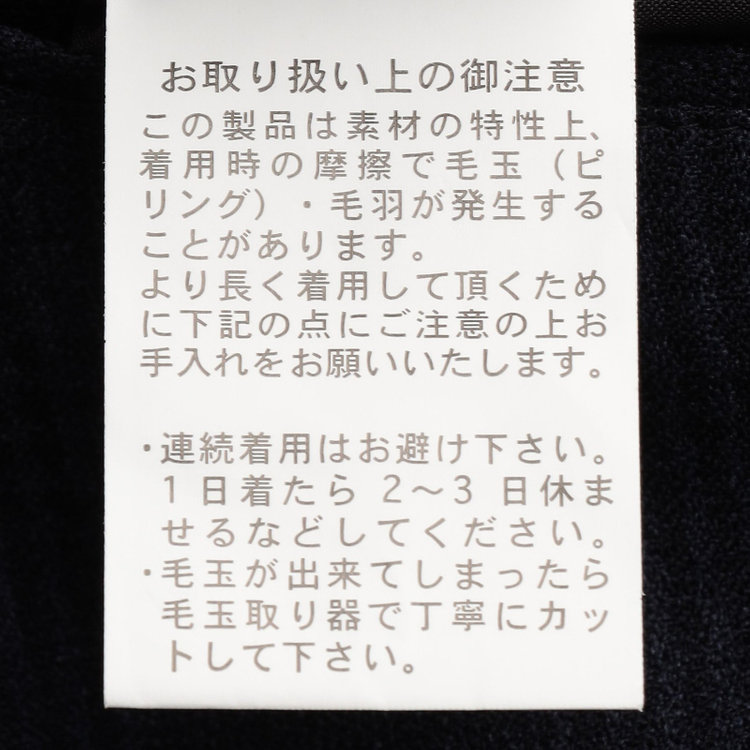 お取り扱い上の御注意
この製品は素材の特性上、
着用時の摩擦で毛玉（ピ
リング）・毛羽が発生する
ことがあります。
より長く着用して頂くため
に下記の点にご注意の上お
手入れをお願いいたします。
・連続着用はお避け下さい。
1日着たら2～3日休ま
せるなどしてください。
・毛玉が出来てしまったら
毛玉取り器で丁寧にカッ
トして下さい。